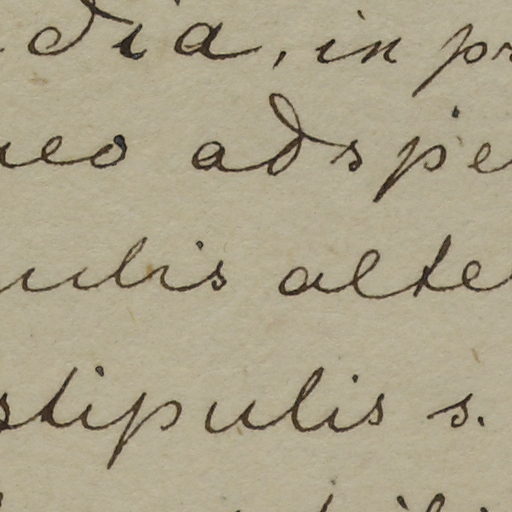 dia, in pr
neo adspe
ulis alte
stipulis s.